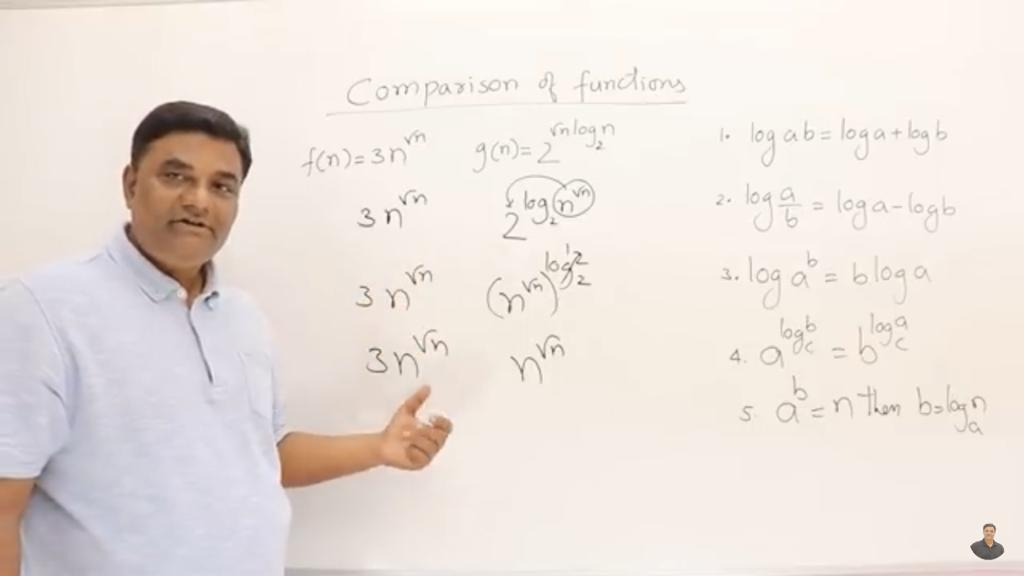 Comparison of functions
f(n)=3n^√n g(n)=2^√n log₂n
3n^√n 2^log₂(n^√n)
3n^√n (n^√n)^log₂2 1
3n^√n n^√n
1. log ab = log a + log b
2. log a/b = log a - log b
3. log a^b = b log a
4. a^log_c b = b^log_c a
5. a^b = n then b = log_a n